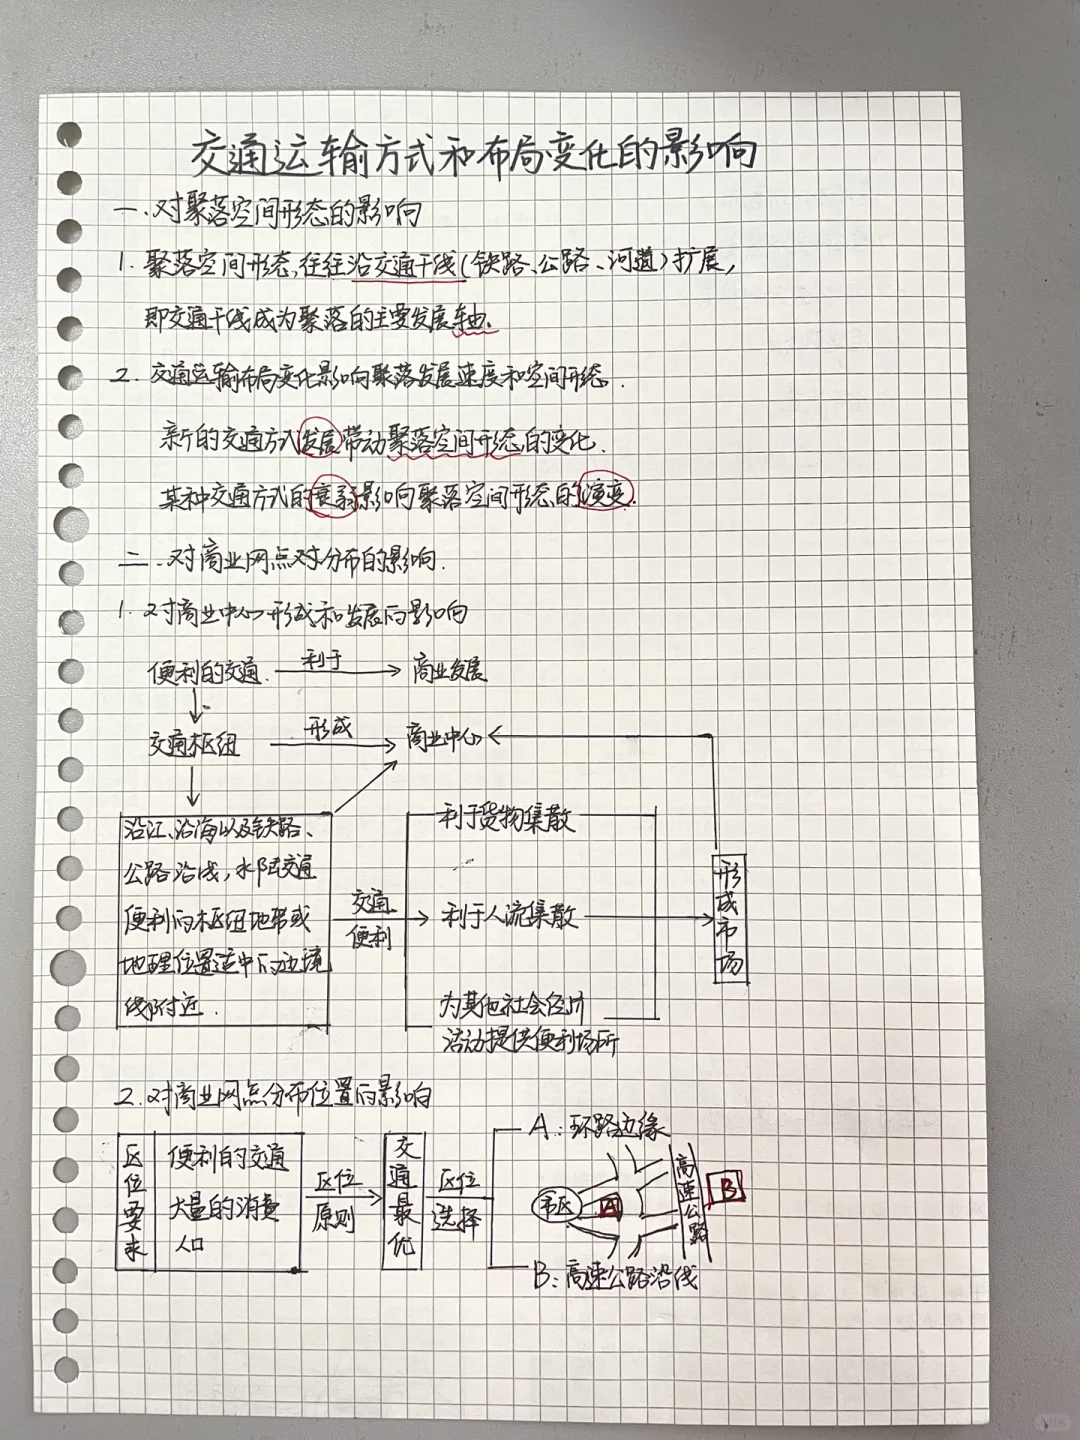 交通运输方式和布局变化的影响
一.对聚落空间形态的影响
1.聚落空间形态,往往沿交通干线(铁路、公路、河道)扩展,
即交通干线成为聚落的主要发展轴.
2.交通运输布局变化影响聚落发展速度和空间形态.
新的交通方式发展带动聚落空间形态的变化.
某种交通方式的衰弱影响聚落空间形态的演变.
二.对商业网点对分布的影响.
1.对商业中心形成和发展的影响
便利的交通. 利于 商业发展
交通枢纽 形成 商业中心
沿江、沿海以及铁路、
公路沿线,水陆交通
便利的枢纽地带或
地理位置适中的边境
线附近.
交通
便利
利于货物集散
利于人流集散
为其他社会经济
活动提供便利场所
形成市场
2.对商业网点分布位置的影响
区位要求
便利的交通
大量的消费
人口
区位
原则
交通最优
区位
选择
A:环路边缘
市区
A
高速公路
B
B:高速公路沿线